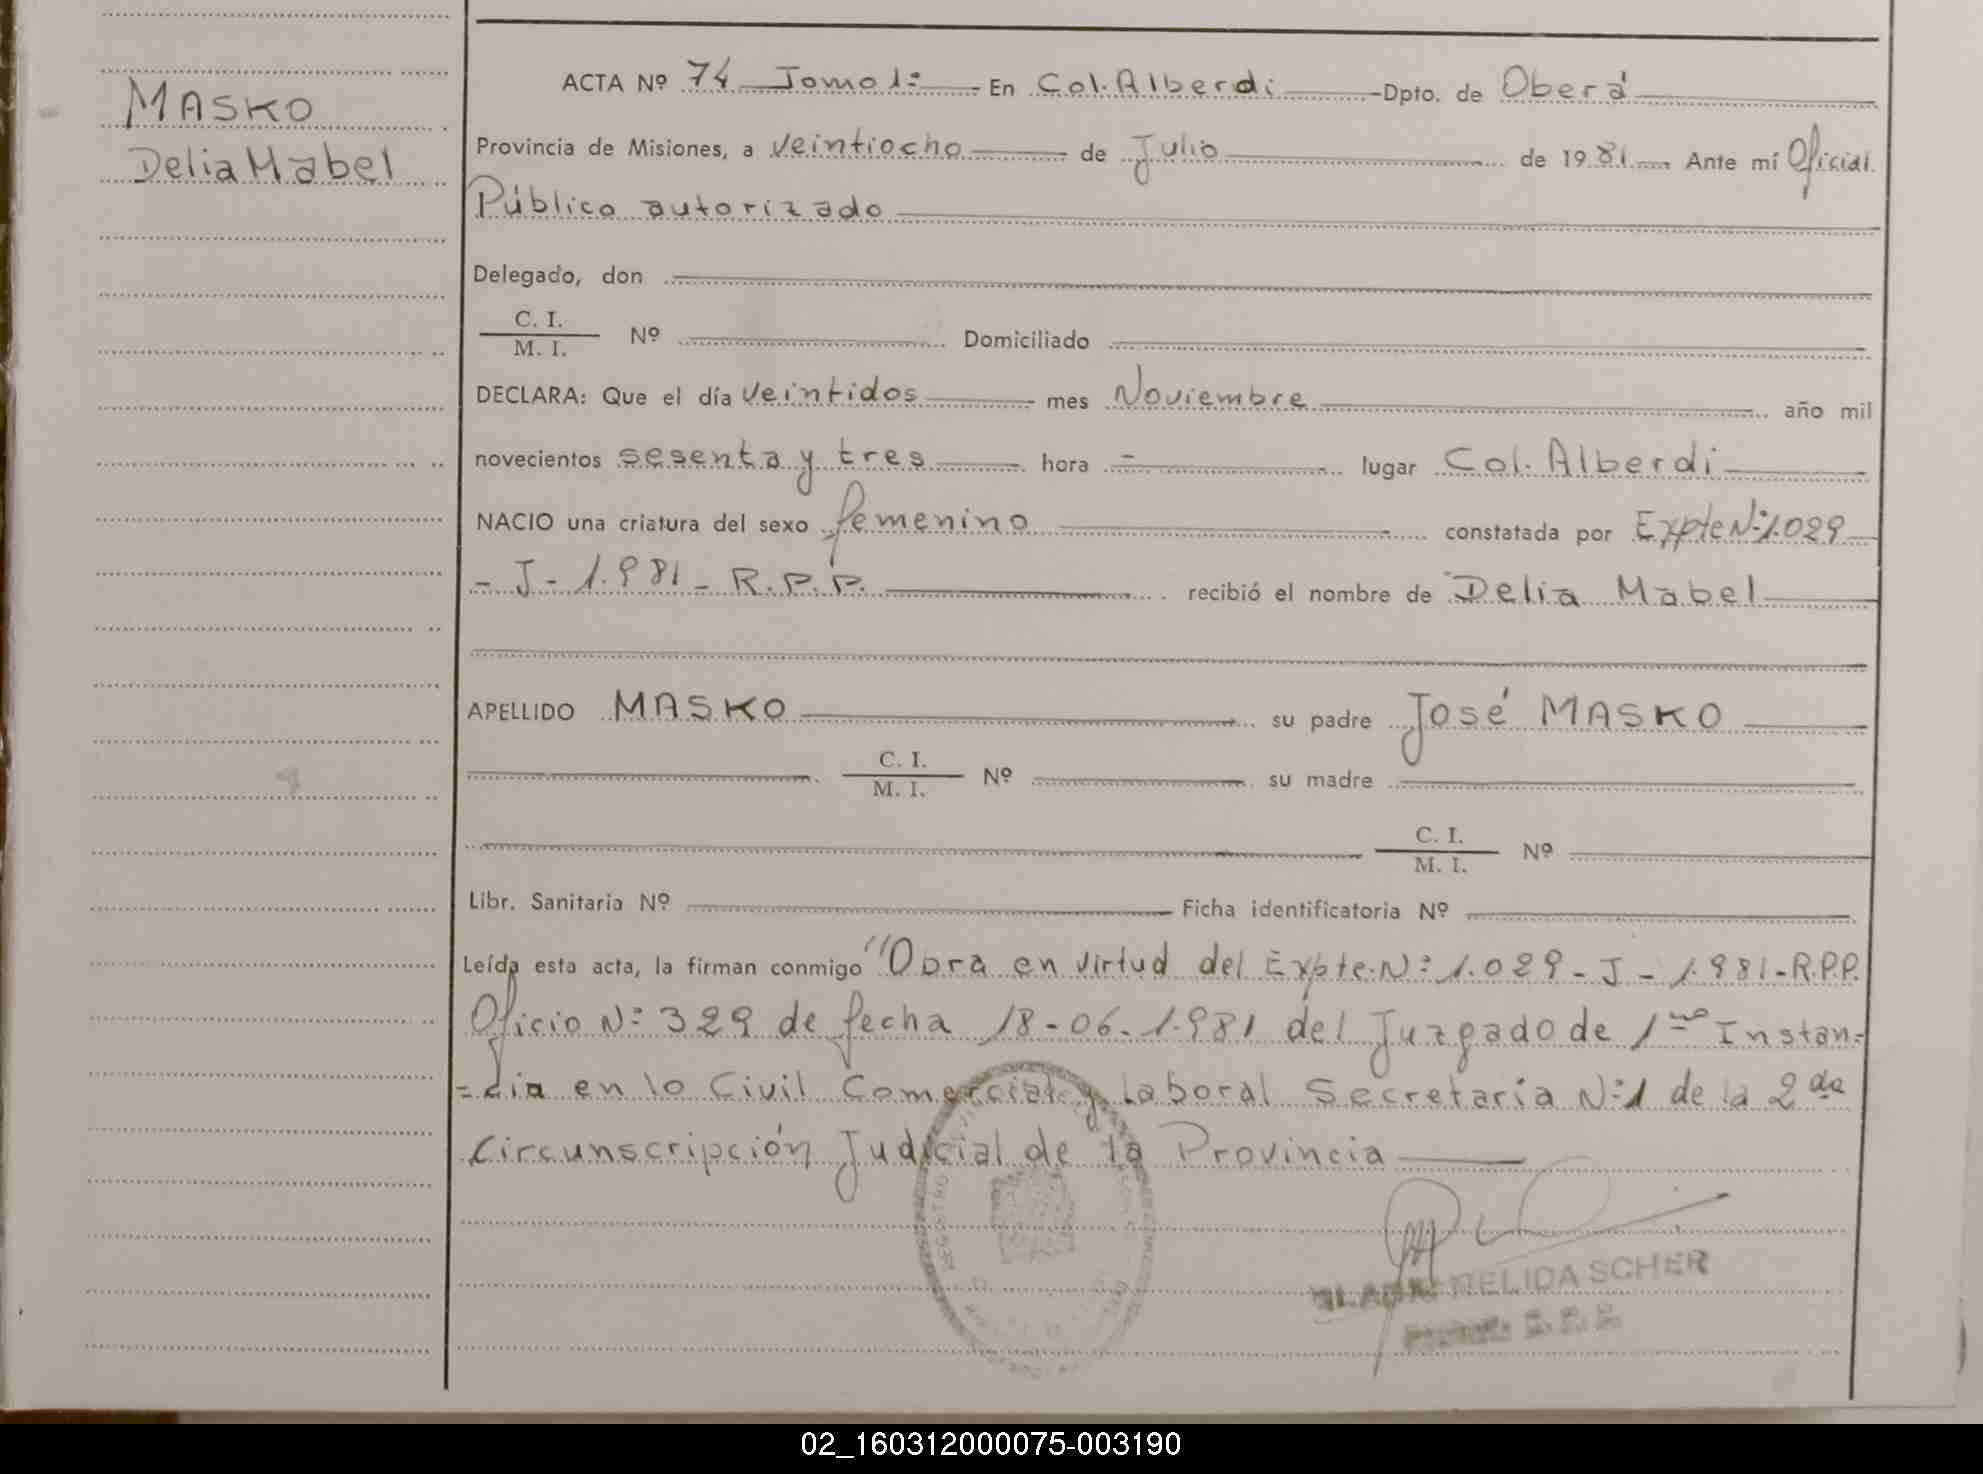 MASKO
Delia Mabel
ACTA Nº 74 Tomo 1º En Col. Alberdi Dpto. de Oberá
Provincia de Misiones, a veintiocho de Julio de 1981 Ante mí Oficial
Público autorizado
Delegado, don
C. I.
M. I. Nº Domiciliado
DECLARA: Que el día veintidos mes Noviembre año mil
novecientos sesenta y tres hora - lugar Col. Alberdi
NACIO una criatura del sexo femenino constatada por Expte Nº 1.029
- J - 1.981 - R.P.P. recibió el nombre de Delia Mabel
APELLIDO MASKO su padre José MASKO
C. I.
M. I. Nº su madre
C. I.
M. I. Nº
Libr. Sanitaria Nº Ficha identificatoria Nº
Leída esta acta, la firman conmigo "Obra en virtud del Expte. Nº 1.029 - J - 1.981 - R.P.P.
Oficio Nº 329 de fecha 18-06-1.981 del Juzgado de 1ra Instan=
=cia en lo Civil Comercial y Laboral Secretaría Nº 1 de la 2da
Circunscripción Judicial de la Provincia
NELIDA SCHER
02_160312000075-003190